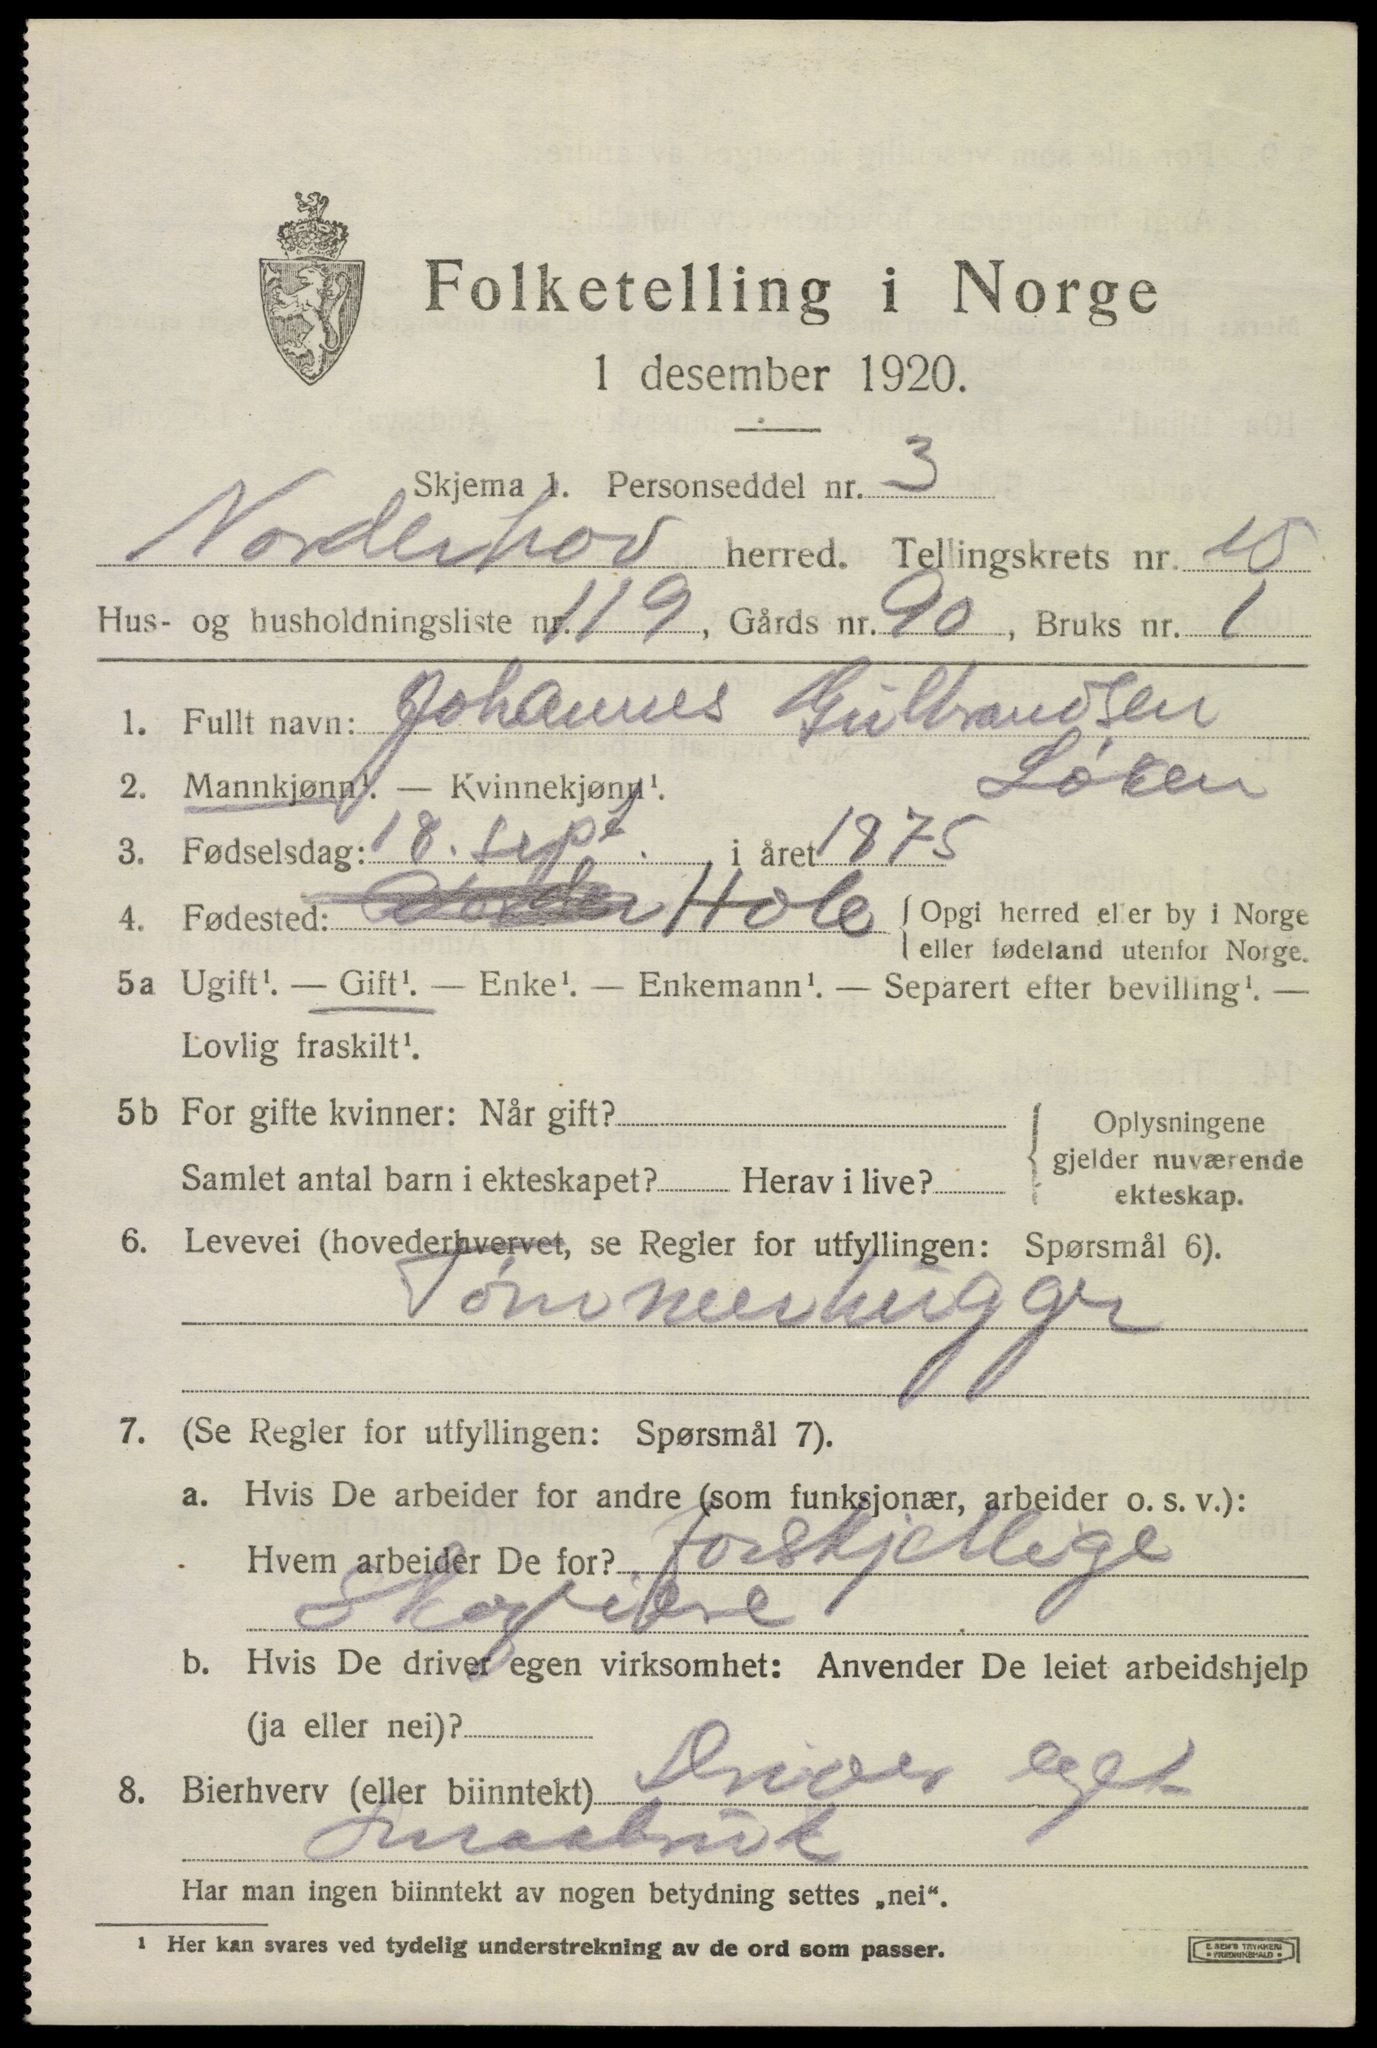 Folketelling i Norge
1 desember 1920.
Skjema 1. Personseddel nr. 3
Norderhov herred. Tellingskrets nr. 15
Hus- og husholdningsliste nr. 119, Gårds nr. 90, Bruks nr. 1
1. Fullt navn: Johannes Gulbrandsen
Løken
2. Mannkjønn¹. — Kvinnekjønn¹.
3. Fødselsdag: 18. sept. i året 1875
4. Fødested: Hole { Opgi herred eller by i Norge
eller fødeland utenfor Norge.
5a Ugift¹. — Gift¹. — Enke¹. — Enkemann¹. — Separert efter bevilling¹. —
Lovlig fraskilt¹.
5b For gifte kvinner: Når gift? { Oplysningene
gjelder nuværende
ekteskap.
Samlet antal barn i ekteskapet? Herav i live?
6. Levevei (hovederhvervet, se Regler for utfyllingen: Spørsmål 6).
Tømmerhugger
7. (Se Regler for utfyllingen: Spørsmål 7).
a. Hvis De arbeider for andre (som funksjonær, arbeider o. s. v.):
Hvem arbeider De for? forskjellige
Skogeiere
b. Hvis De driver egen virksomhet: Anvender De leiet arbeidshjelp
(ja eller nei)?
8. Bierhverv (eller biinntekt) Driver eget
Smaabruk
Har man ingen biinntekt av nogen betydning settes „nei“.
¹ Her kan svares ved tydelig understrekning av de ord som passer.
E. SEM'S TRYKKERI
* FREDRIKSHALD *